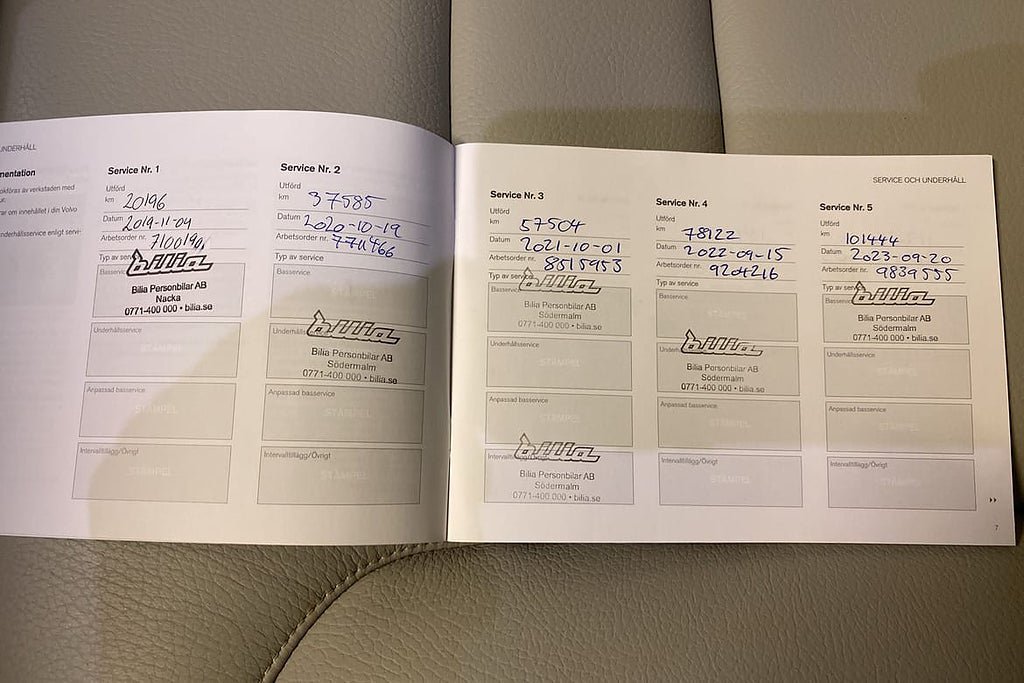 UNDERHÅLL
mentation
okföras av verkstaden med
rar om innehållet i din Volvo
underhållsservice enligt serv-
Service Nr. 1
Utförd
km 20196
Datum 2019-11-04
Arbetsorder nr.
Typ av
bilia
Bilia Personbilar AB
Nacka
0771-400 000 • bilia.se
Underhållsservice
STÄMPEL
Anpassad basservice
STÄMPEL
Intervalltillägg/Övrigt
STÄMPEL
Service Nr. 2
Utförd
km 37585
Datum 2020-10-19
Arbetsorder nr. 7711466
Typ av service
Basservice
STÄMPEL
bilia
Bilia Personbilar AB
Södermalm
0771-400 000 • bilia.se
Anpassad basservice
STÄMPEL
Intervalltillägg/Övrigt
STÄMPEL
SERVICE OCH UNDERHÅLL
Service Nr. 3
Utförd
km 57504
Datum 2021-10-01
Arbetsorder nr. 8515953
Typ av service
bilia
Bilia Personbilar AB
Södermalm
0771-400 000 • bilia.se
Underhållsservice
STÄMPEL
Anpassad basservice
STÄMPEL
Intervalltillägg/Övrigt
bilia
Bilia Personbilar AB
Södermalm
0771-400 000 • bilia.se
Service Nr. 4
Utförd
km 78122
Datum 2022-09-15
Arbetsorder nr. 9204216
Typ av service
Basservice
STÄMPEL
bilia
Bilia Personbilar AB
Södermalm
0771-400 000 • bilia.se
Anpassad basservice
STÄMPEL
Intervalltillägg/Övrigt
STÄMPEL
Service Nr. 5
Utförd
km 101444
Datum 2023-09-20
Arbetsorder nr. 9839555
Typ av
bilia
Bilia Personbilar AB
Södermalm
0771-400 000 • bilia.se
Underhållsservice
STÄMPEL
Anpassad basservice
STÄMPEL
Intervalltillägg/Övrigt
STÄMPEL
7